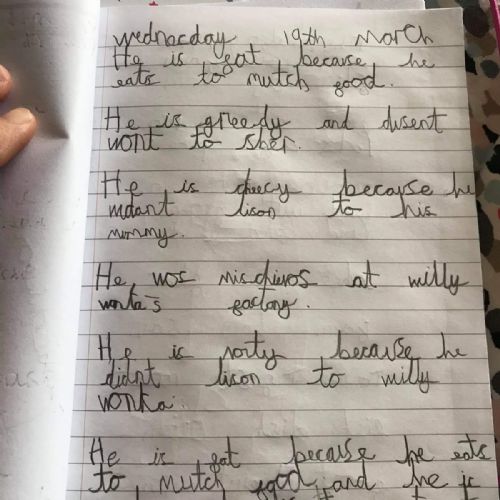 wednecday 19th March
He is fat because he
eats to mutch food.
He is greedy and dusent
wont to sher.
He is cheecy because he
lison to his
mummy.
He wos mischievos at willy
wonka's factory.
He is norty because he
didn't lison to willy
wonka.
He is fat because he eats
to mutch food and he is